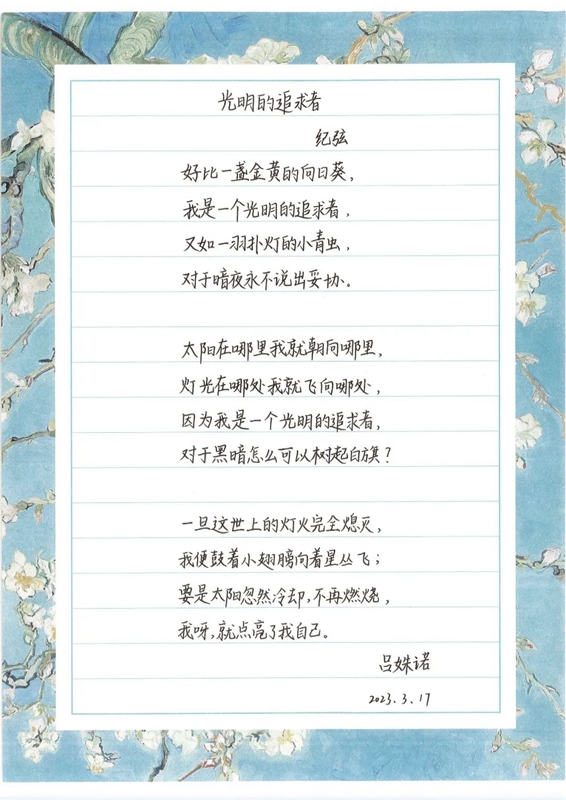 光明的追求者
纪弦
好比一盏金黄的向日葵，
我是一个光明的追求者，
又如一羽扑灯的小青虫，
对于暗夜永不说出妥协。
太阳在哪里我就朝向哪里，
灯光在哪处我就飞向哪处，
因为我是一个光明的追求者，
对于黑暗怎么可以树起白旗？
一旦这世上的灯火完全熄灭，
我便鼓着小翅膀向着星丛飞；
要是太阳忽然冷却，不再燃烧，
我呀，就点亮了我自己。
吕姝诺
2023.3.17